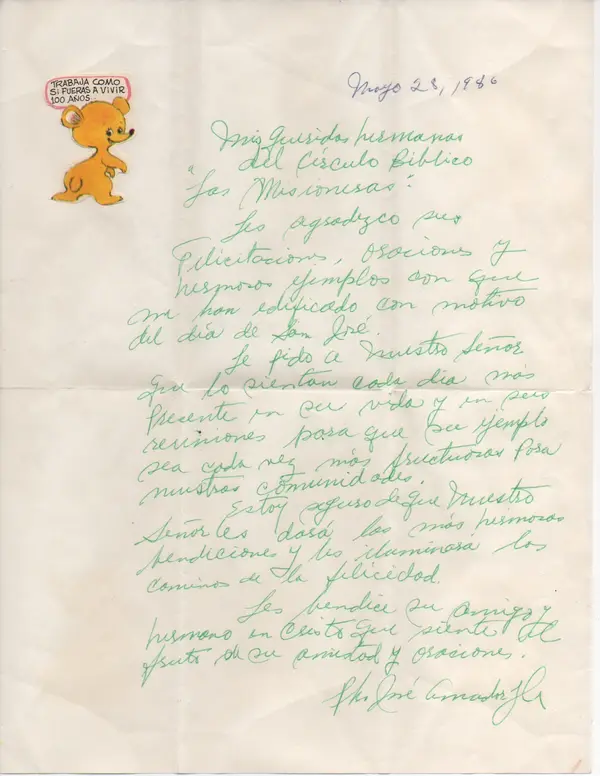 TRABAJA COMO
SI FUERAS A VIVIR
100 AÑOS..
Mayo 28, 1986
Mis queridas hermanas
del Círculo Bíblico
"Las Misioneras":
Les agradezco sus
felicitaciones, oraciones y
hermosos ejemplos con que
me han edificado con motivo
del día de San José.
Le pido a Nuestro Señor
que lo sientan cada día más
presente en su vida y en sus
reuniones para que su ejemplo
sea cada vez más fructuosas para
nuestras comunidades.
Estoy seguro de que Nuestro
Señor les dará las más hermosas
bendiciones y les iluminará los
caminos de la felicidad.
Les bendice su amigo y
hermano en Cristo que siente el
fruto de su amistad y oraciones.
José Amador